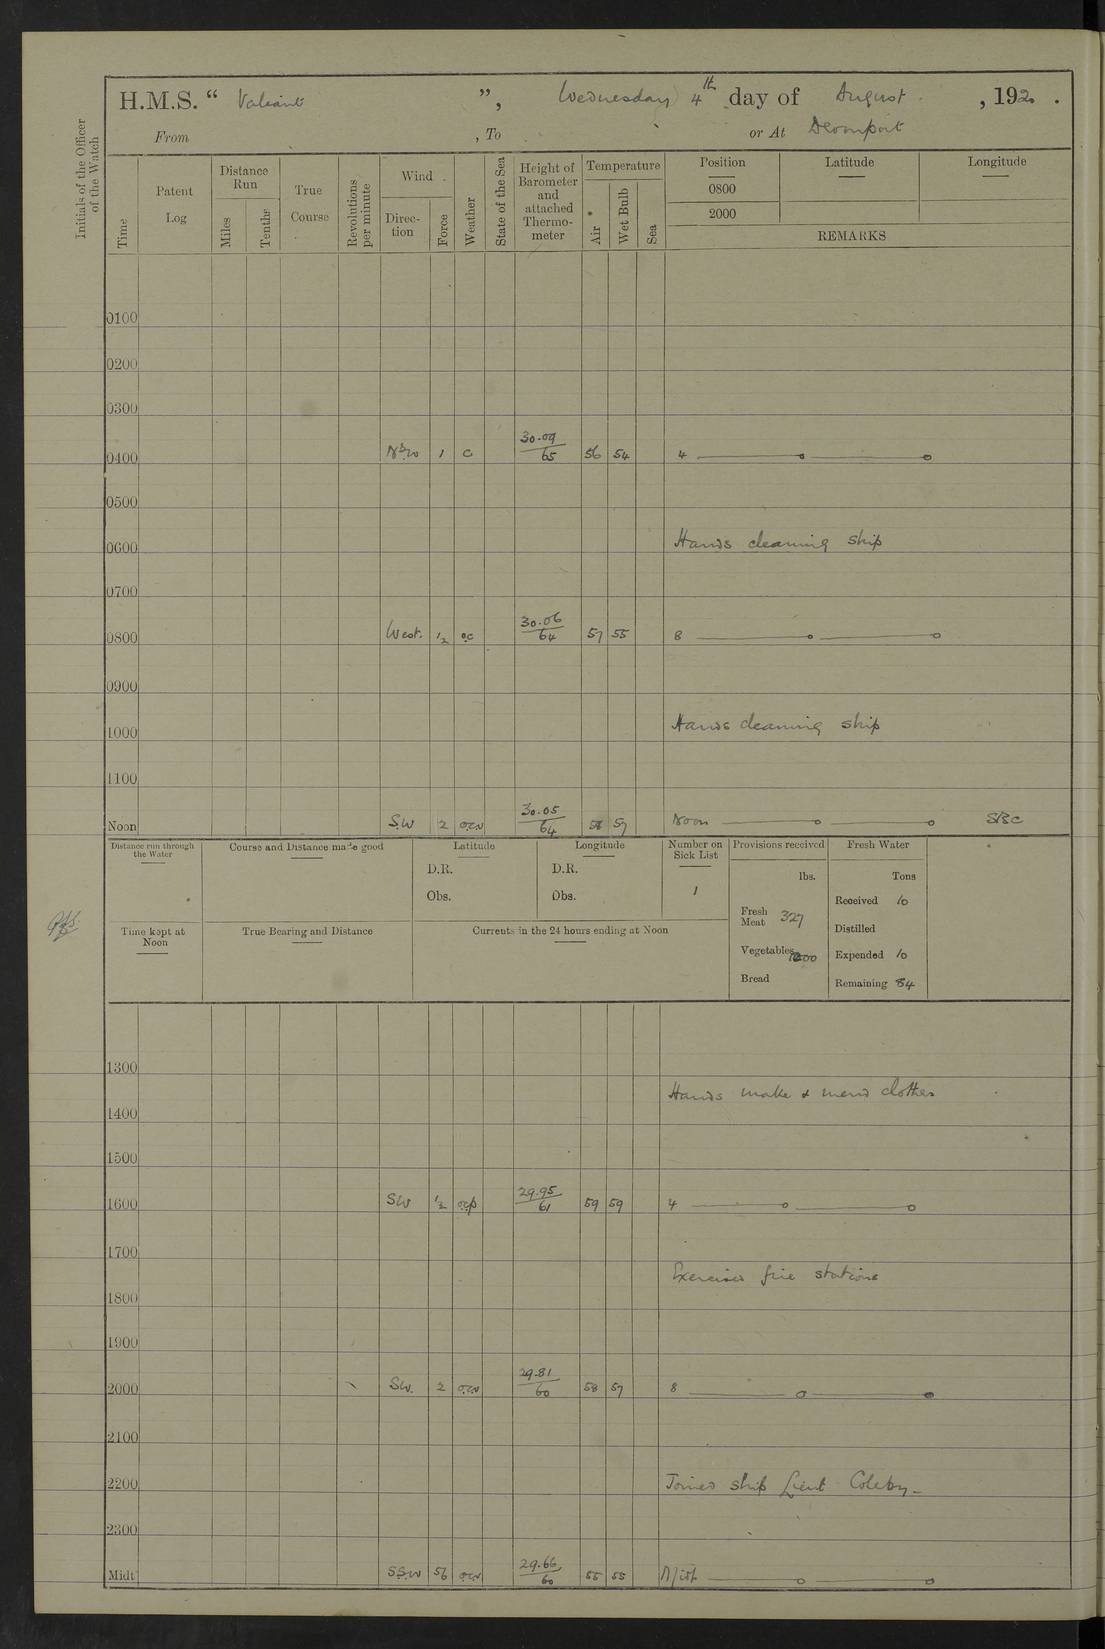 H.M.S. “ Valiant ”, Wednesday 4th day of August , 1920 .
From , To or At Devonport
Initials of the Officer of the Watch
Time
Patent Log
Distance Run
Miles
Tenths
True Course
Revolutions per minute
Wind
Direction
Force
Weather
State of the Sea
Height of Barometer and attached Thermometer
Temperature
Air
Wet Bulb
Sea
Position Latitude Longitude
0800
2000
REMARKS
0100
0200
0300
0400 NBW 1 c 30.09 65 56 54 4
0500
0600 Hands cleaning ship
0700
0800 West. ½ oc 30.06 64 57 55 8
0900
1000 Hands cleaning ship
1100
Noon SW 2 30.05 64 58 57 Noon SBC
Distance run through the Water
Course and Distance made good
Latitude
D.R.
Obs.
Longitude
D.R.
Obs.
Number on Sick List
1
Provisions received
lbs.
Fresh Meat 327
Vegetables
Bread
Fresh Water
Tons
Received 10
Distilled
Expended 10
Remaining 84
Time kept at Noon
True Bearing and Distance
Currents in the 24 hours ending at Noon
1300
Hands make & mend clothes
1400
1500
1600 SW ½ ocp 29.95 61 59 59 4
1700
Exercised fire stations
1800
1900
2000 SW. 2 29.81 60 58 57 8
2100
2200 Joined ship Lieut Coleby
2300
Midt SSW 56 29.66 60 55 55 Midt